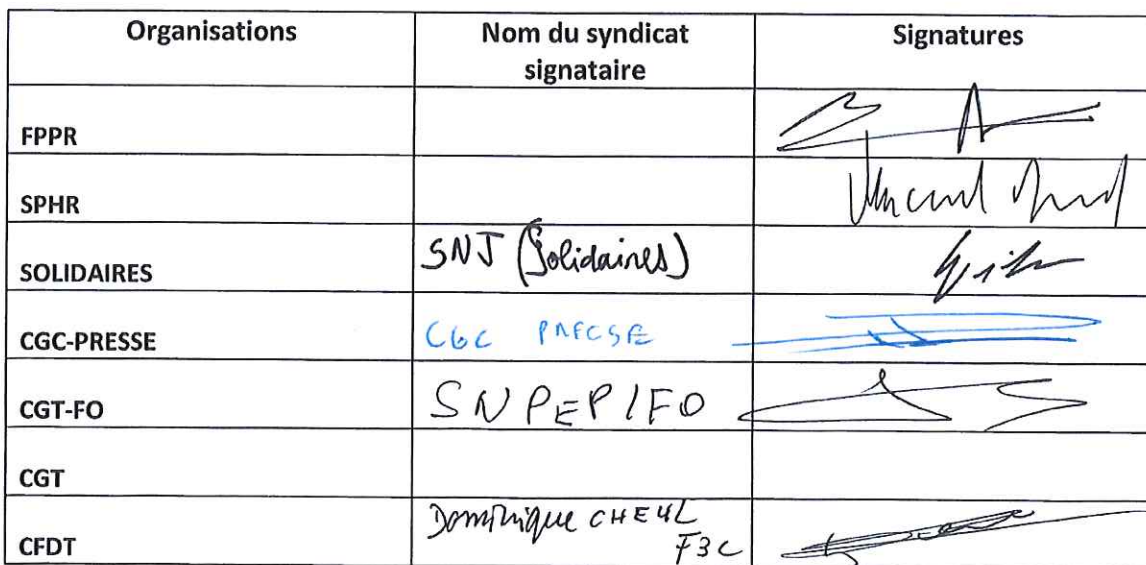 Organisations Nom du syndicat signataire Signatures
FPPR
SPHR Vincent
SOLIDAIRES SNJ (Solidaires)
CGC-PRESSE CGC PRECSE
CGT-FO SNPEP/FO
CGT
CFDT Dominique
F3C